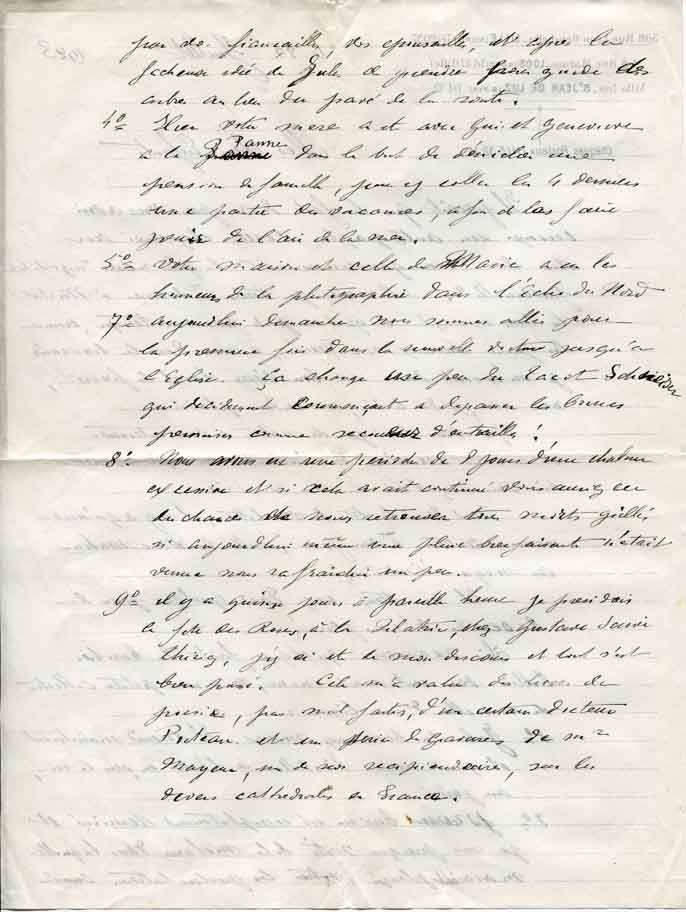 par des fiancailles, des epousailles, et apres la
facheuse idée de Jules de prendre pour guide des
arbres au lieu du pavé de la route.
4º Hier votre mere a été avec Guy et Genevieve
a la Panne dans le but de dénicher une
pension de famille, pour y coller les 4 derniers
une partie des vacances, afin de les faire
jouir de l'air de la mer.
5º Votre maison et celle de Marie a eu les
honneurs de la photographie dans l'Echo du Nord
7º aujourdhui dimanche nous sommes allés pour
la premiere fois dans la nouvelle voiture jusqu'à
l'Eglise. Ça change un peu du tacot Schneider
qui decidement commençait a depasser les bornes
permises comme secousses d'entrailles!
8º Nous avons eu une periode de 8 jours d'une chaleur
excessive et si cela avait continué vous auriez eu
des chances de nous retrouver tous morts grillés
si aujourdhui même une pluie bienfaisante n'était
venue nous rafraichir un peu.
9º il y a quinze jours à pareille heure je presidais
la fete des Roses, à la filature, chez Gustave
Thiriez, j'y ai été de mon discours et tout s'est
bien passé. Cela m'a valu des vers de
poesie, pas mal faits, d'un certain docteur
et un de gravures de Mr
Mayeur, un de nos recipiendaires, sur les
divers cathedrales en France.